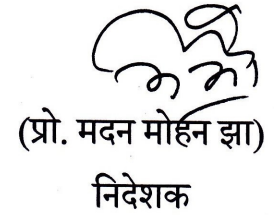 (प्रो. मदन मोहन झा)
निदेशक